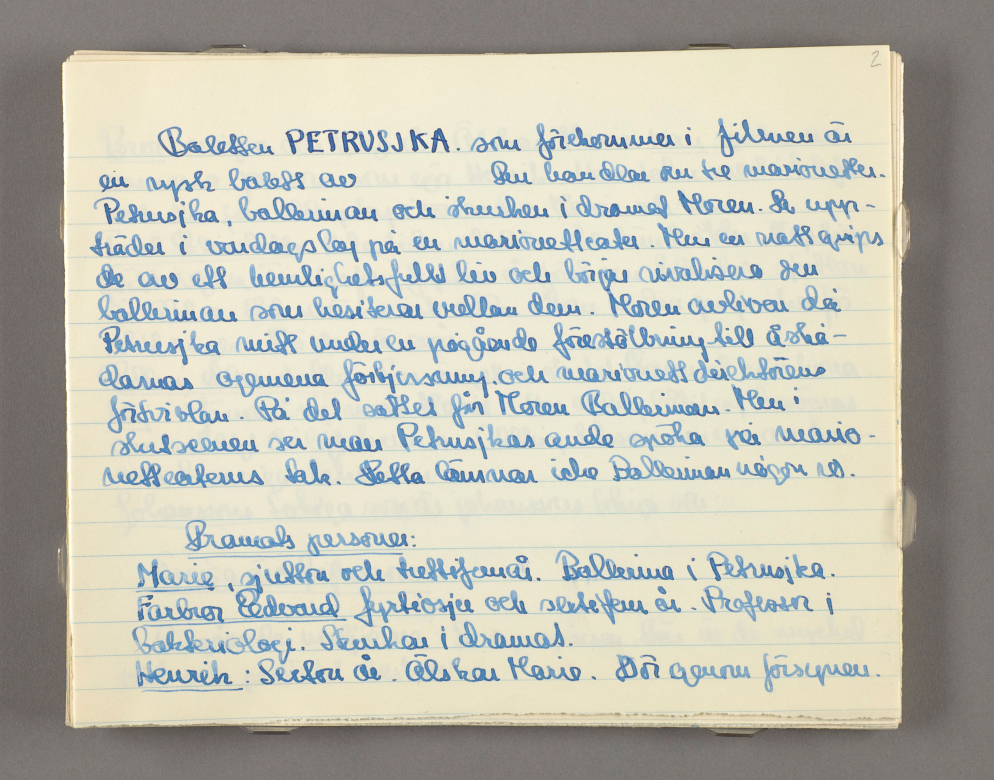 2
Baletten PETRUSJKA. som förekommer i filmen är
en rysk balett av Den handlar om tre marionetter.
Petrusjka, ballerinan och skurken i dramat Moren. De upp-
träder i vardagslag på en marionetteater. Men en natt grips
de av ett hemlighetsfullt liv och börjar rivalisera om
ballerinan som hesiterar mellan dem. Moren avlivar då
Petrusjka mitt under en pågående föreställning till åskå-
darnas ogemena förbjusning. och marionettdirektörens
förtvivlan. På det sättet får Moren Ballerinan. Men i
slutscenen ser man Petrusjkas ande spöka på mario-
netteaterns tak. Detta lämnar icke Ballerinan någon ro.
Dramats personer:
Marie, sjutton och trettifem år. Ballerina i Petrusjka.
Farbror Edvard fyrtiosju och sextifem år. Professor i
bakteriologi. Skurken i dramat.
Henrik: Sexton år. Älskar Marie. Dör genom försynen.